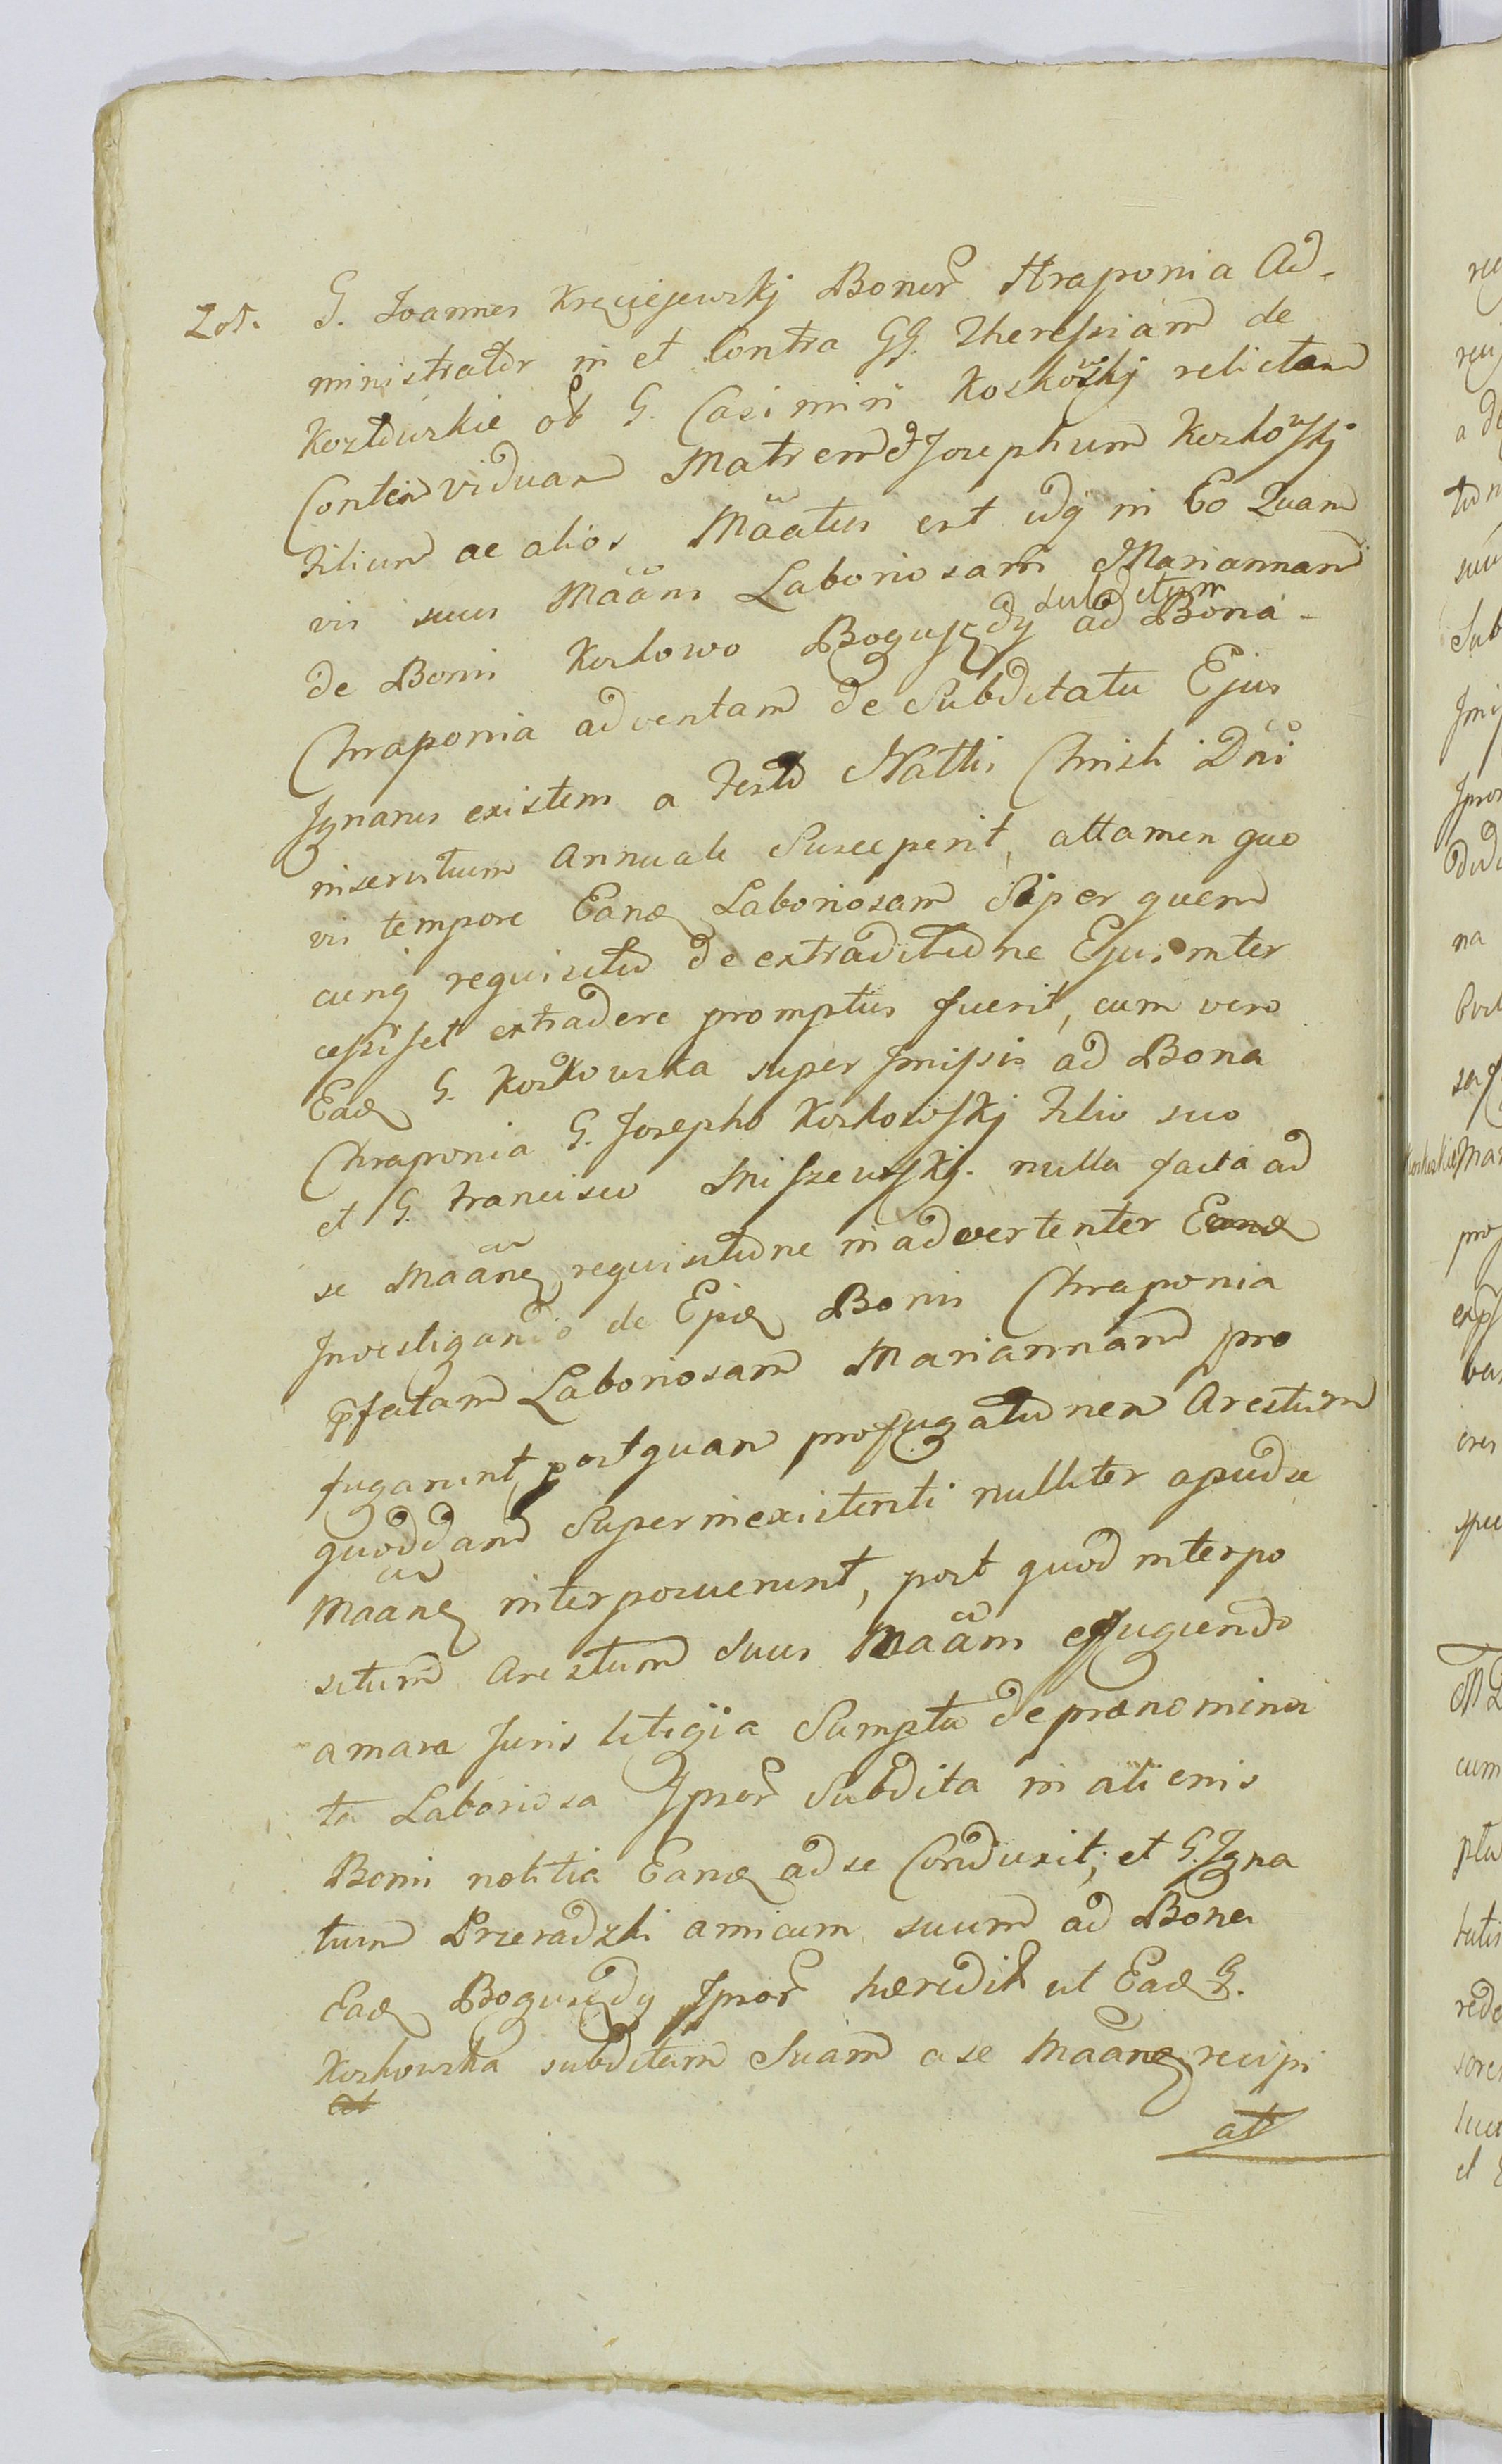 201. G. Joannes Kręciejewskj Bonorũ Hraponia Ad-
ministrator in et Contra GG. Theressiam de
Kozłowskie olῖ G. Casimiri Koskowskj relictam
Conten viduam Matrem & Josephum Koskowskj
Filium ac alios Mãatus est idq in Eo Quam
vis suus Mãans Laboriosam Mariannam
de Bonis Koskowo Bogusędy subditam ad Bona
Chraponia adventam de Subditatu Ejus
Ignarus existens a Festo Nattis Christi Dñi
inservitium annuale Susceperit, attamen quo
vis tempore Eanđ Laboriosam Si per quem
cunq requisitio de extraditione Ejus inter
cessisset extradere promptus fuerit, cum vero
Eađ G. Koskowska super Imissis ad Bona
Chraponia G. Josepho Koskowskj Filio suo
et G. Francisco Miszewskj. nulla facta ad
se Mãanđ requisitione inadvertenter Eanđ
Investigando de Ejsđ Bonis Chraponia
pfatam Laboriosam Mariannam pro
fugarunt, postquam profugationem Arestum
quoddam Super inexistenti nulliter apud se
Mãanđ interposuerunt, post quod interpo
situm Arestum Suus Mãans effugiendo
amara Juris litigia Sumpta de prænomina
ta Laboriosa Ipsorũ Subdita in alienis
Bonis notitia Eanđ ad se Conduxit, et G. Igna
tium Przeradzki amicum suum ad Bona
Eađ Bogusędy Ipsorũ hæredit ut Eađ G.
Koskowska subditam Suam a se Mãanđ recipi
at
at